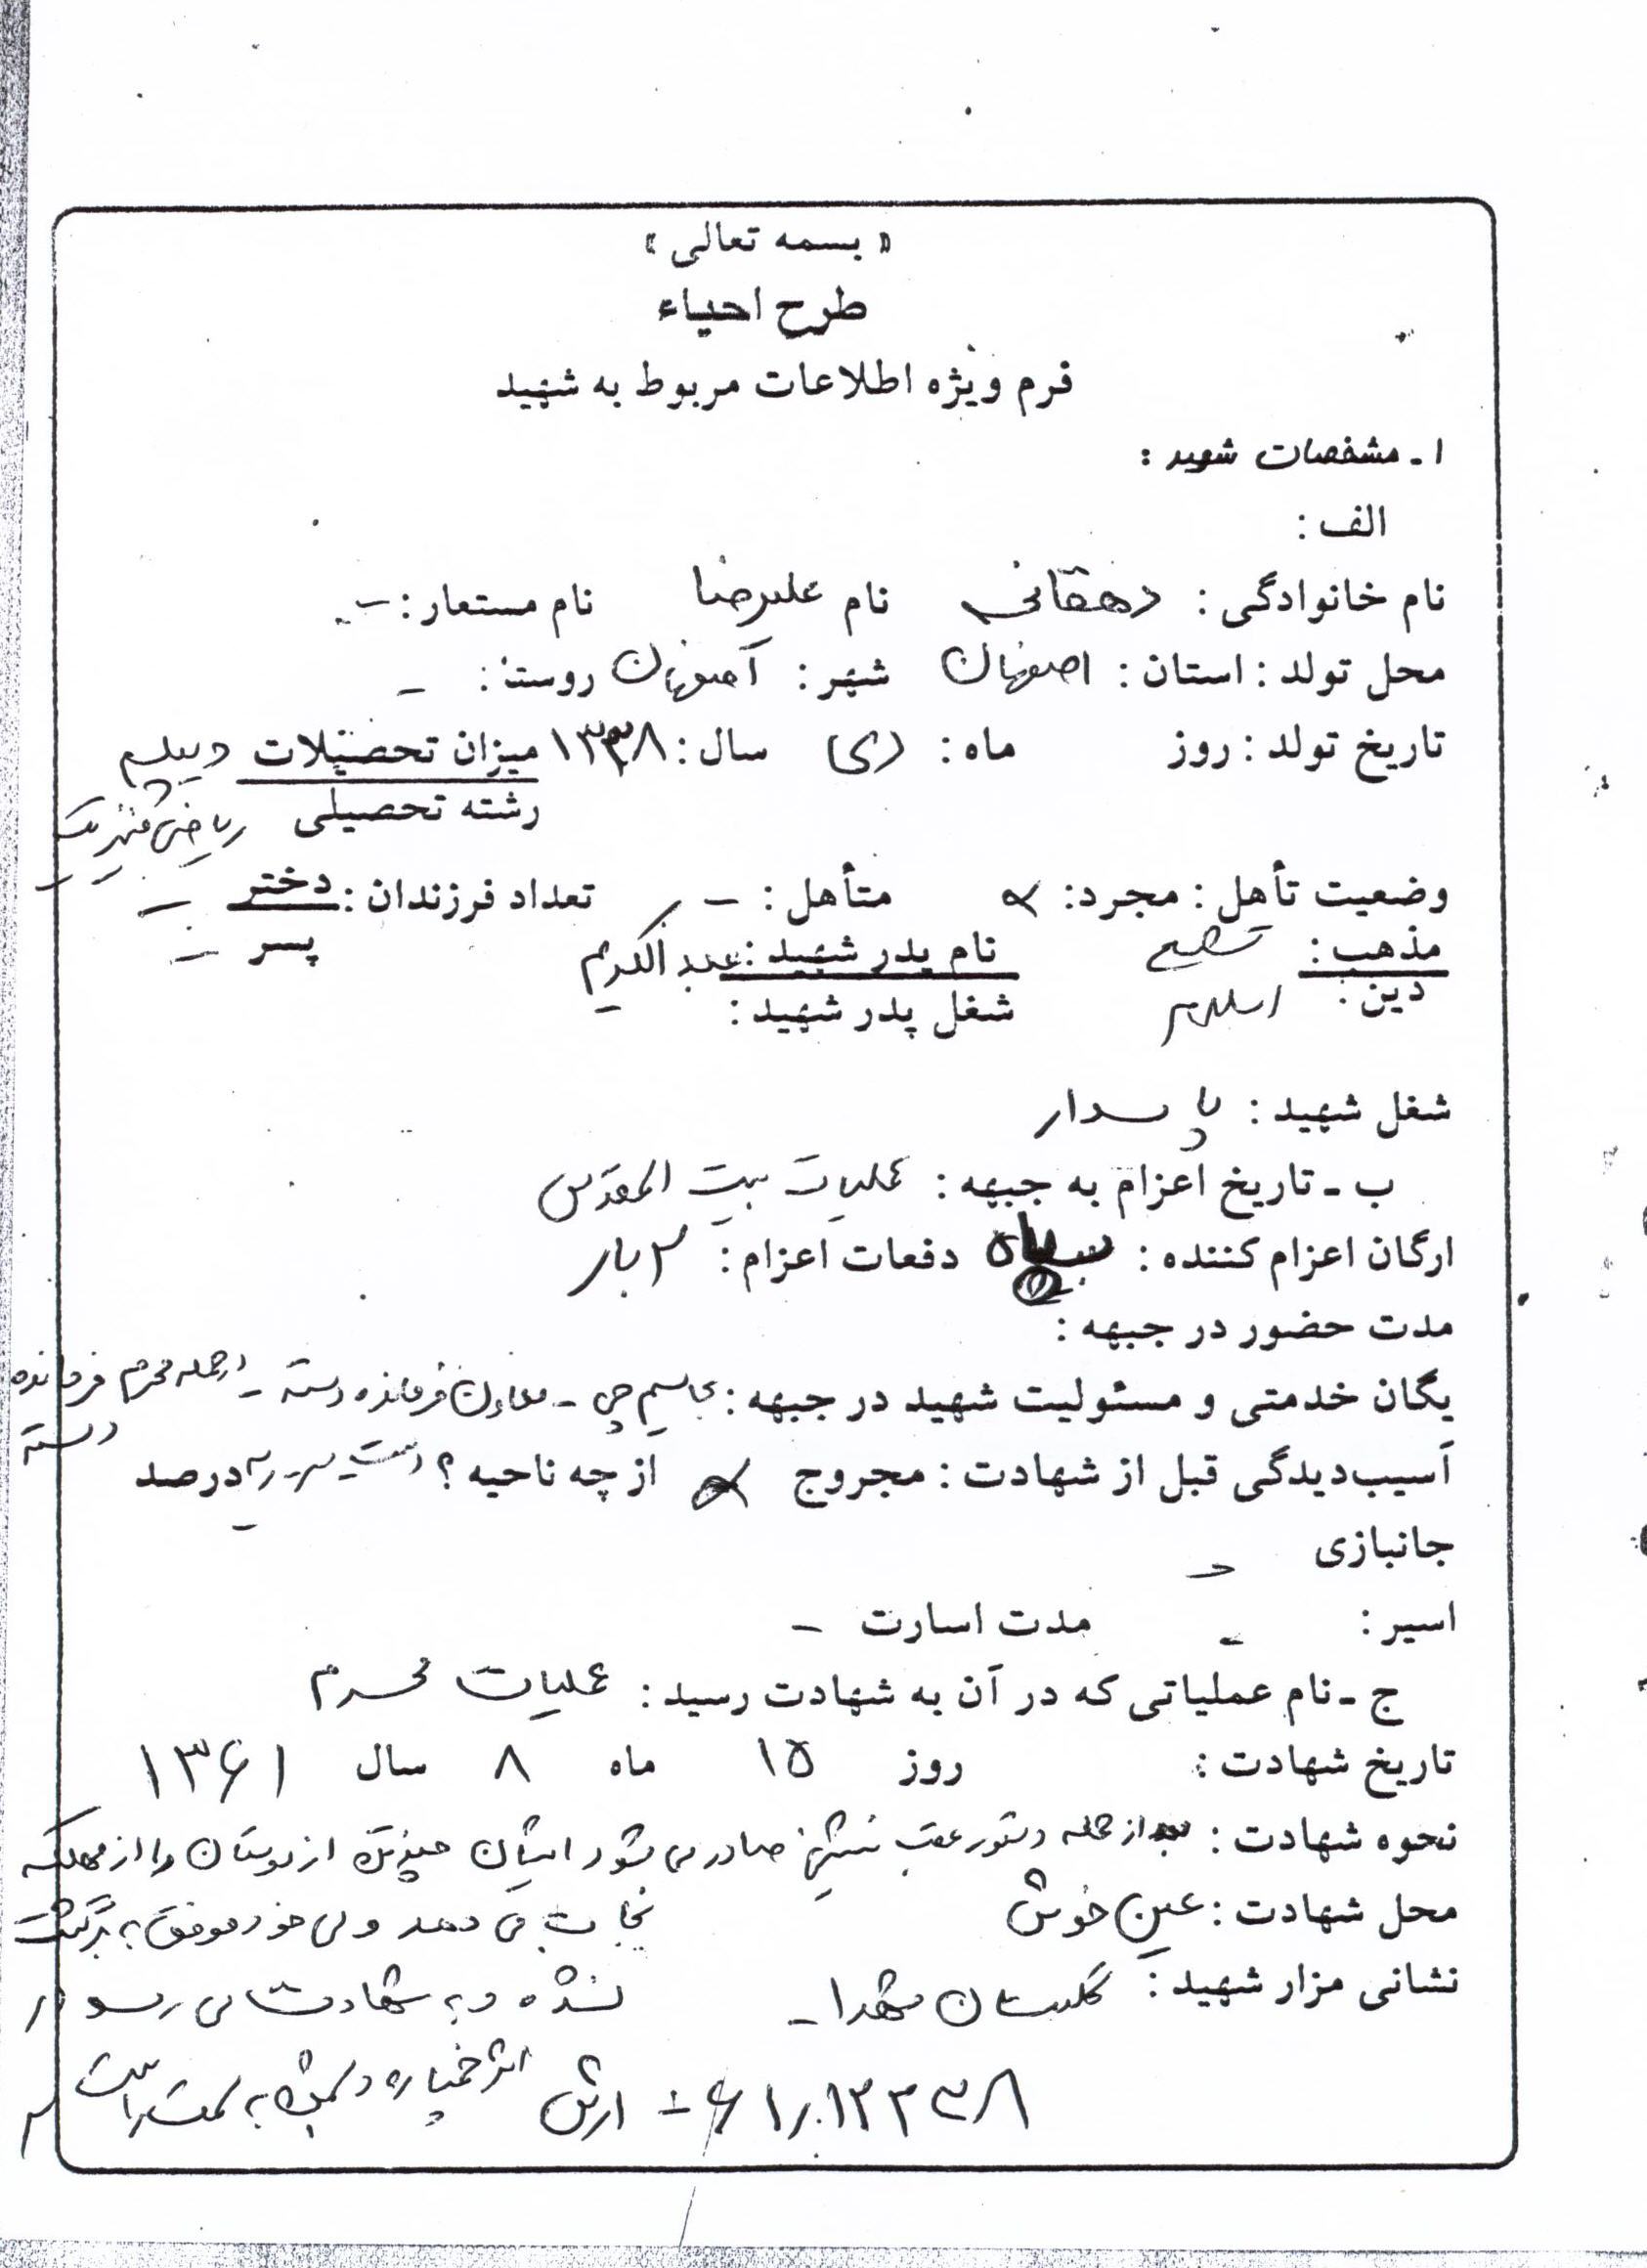 « بسمه تعالی »
طرح احیاء
فرم ویژه اطلاعات مربوط به شهید
۱ ـ مشخصات شهید :
الف :
نام خانوادگی : دهقانی نام علیرضا نام مستعار : –
محل تولد : استان : اصفهان شهر : اصفهان روستا : –
تاریخ تولد : روز ماه : دی سال : ۱۳۳۸ میزان تحصیلات دیپلم
رشته تحصیلی ریاضی فیزیک
وضعیت تأهل : مجرد : × متأهل : – تعداد فرزندان : دختر –
پسر –
مذهب : تشیع نام پدر شهید : عبدالکریم
دین : اسلام شغل پدر شهید :
شغل شهید : پاسدار
ب ـ تاریخ اعزام به جبهه : عملیات بیت المقدس
ارگان اعزام کننده : سپاه دفعات اعزام : ۲ بار
مدت حضور در جبهه :
یگان خدمتی و مسئولیت شهید در جبهه : بی سیم چی – معاون فرمانده دسته – در حمله محرم فرمانده
دسته
آسیب‌دیدگی قبل از شهادت : مجروح × از چه ناحیه ؟ دست درصد
جانبازی –
اسیر : – مدت اسارت –
ج ـ نام عملیاتی که در آن به شهادت رسید : عملیات محرم
تاریخ شهادت : روز ۱۵ ماه ۸ سال ۱۳۶۱
نحوه شهادت : بعد از حمله دستور عقب نشینی صادر می شود ایشان چند تن از دوستان را از مهلکه
نجات می دهد ولی خود موفق به برگشت
محل شهادت : عین خوش
نشده و به شهادت می رسد
نشانی مزار شهید : گلستان شهدا –
اثر خمپاره و